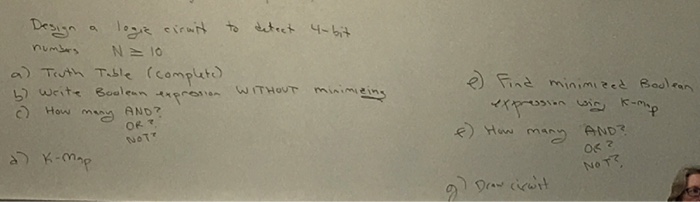 Design a logic circuit to detect 4-bit
numbers N ≥ 10
a) Truth Table (complete)
b) Write Boolean expression WITHOUT minimizing
c) How many AND?
OR?
NOT?
d) K-map
e) Find minimized Boolean
expression using K-map
f) How many AND?
OR?
NOT?
g) Draw circuit